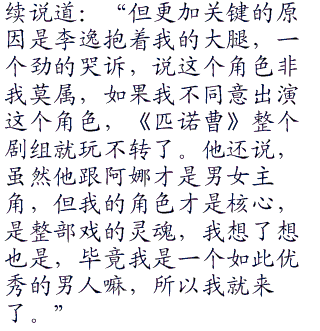 续说道：“但更加关键的原
因是李逸抱着我的大腿，一
个劲的哭诉，说这个角色非
我莫属，如果我不同意出演
这个角色，《匹诺曹》整个
剧组就玩不转了。他还说，
虽然他跟阿娜才是男女主
角，但我的角色才是核心，
是整部戏的灵魂，我想了想
也是，毕竟我是一个如此优
秀的男人嘛，所以我就来
了。”